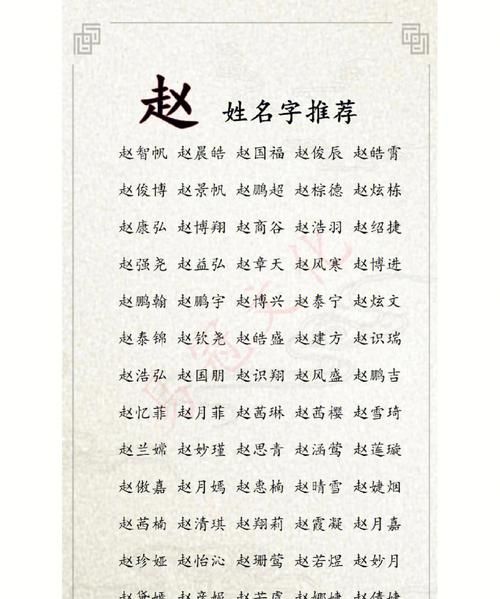 赵 姓名字推荐
赵智帆 赵晨皓 赵国福 赵俊辰 赵皓霄
赵俊博 赵景帆 赵鹏超 赵棕德 赵炫栋
赵康弘 赵博翔 赵商谷 赵浩羽 赵绍捷
赵强尧 赵益弘 赵章天 赵风寒 赵博进
赵鹏翰 赵鹏宇 赵博兴 赵泰宁 赵炫文
赵泰锦 赵钦尧 赵皓盛 赵建方 赵识瑞
赵浩弘 赵国朋 赵识翔 赵风盛 赵鹏吉
赵忆菲 赵月菲 赵茜琳 赵茜樱 赵雪琦
赵兰嫦 赵妙瑾 赵思青 赵涵莺 赵莲璇
赵傲嘉 赵月嫣 赵惠楠 赵晴雪 赵婕烟
赵茜楠 赵清琪 赵翔莉 赵霞凝 赵月嘉
赵珍娅 赵怡沁 赵珊莺 赵若煜 赵妙月